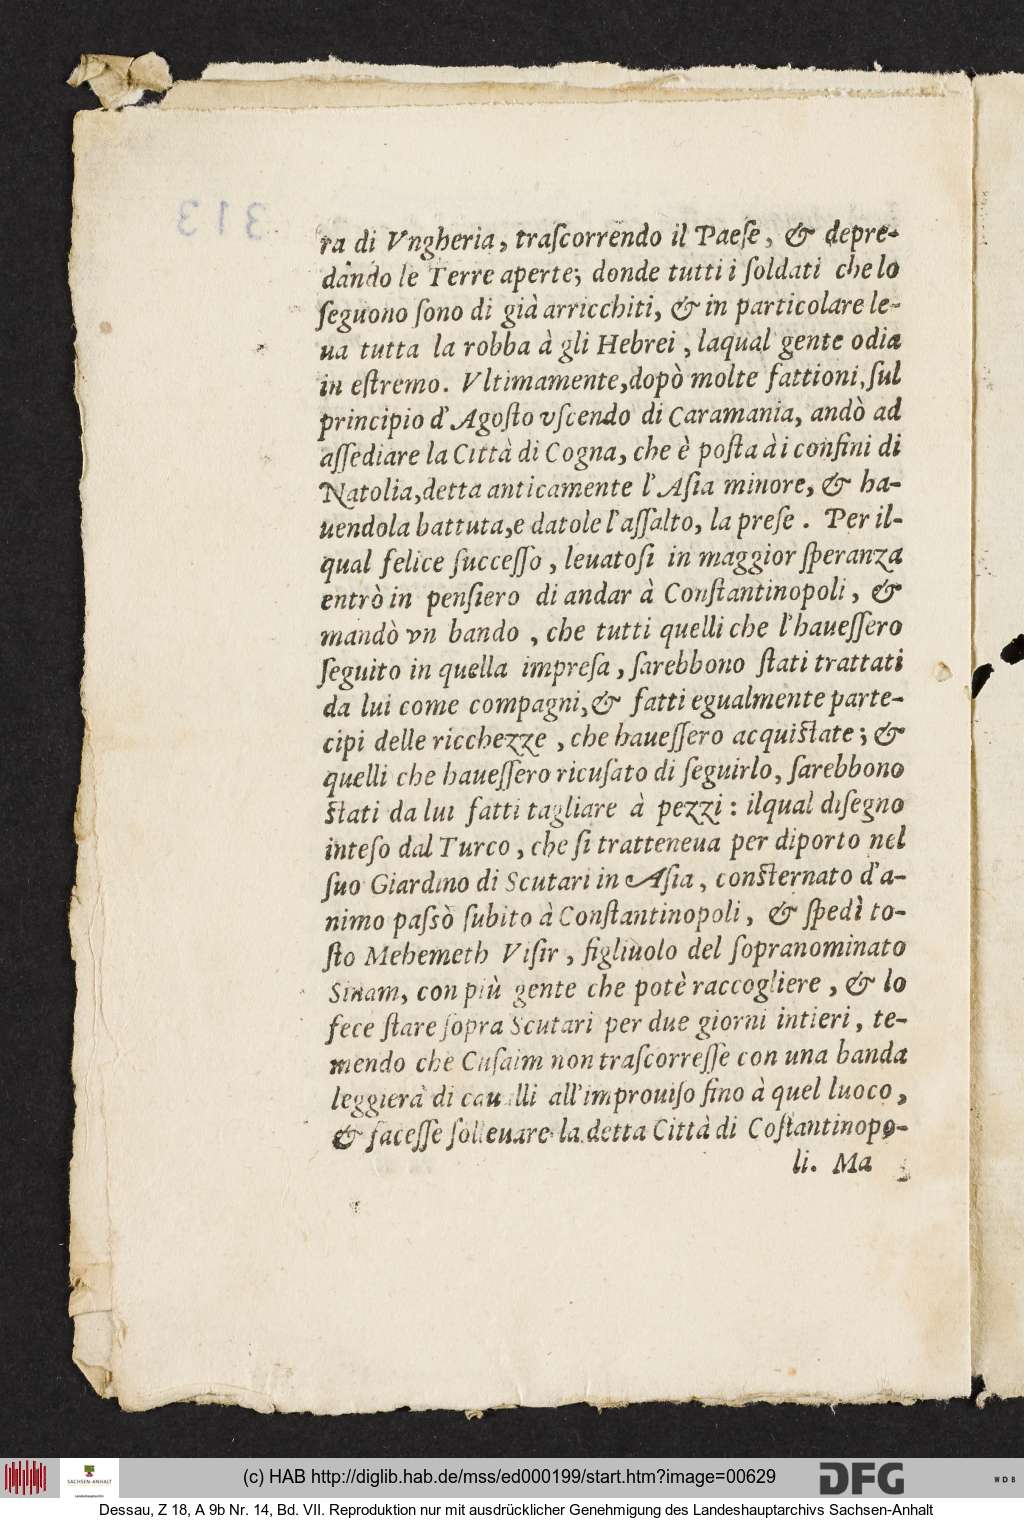 313
ra di Vngheria, traſcorrendo il Paeſe, & depre-
dando le Terre aperte; donde tutti i ſoldati che lo
ſeguono ſono di già arricchiti, & in particolare le-
ua tutta la robba à gli Hebrei, laqual gente odia
in eſtremo. Vltimamente,dopò molte fattioni,ſul
principio d'Agoſto vſcendo di Caramania, andò ad
aſſediare la Città di Cogna, che è poſta à i confini di
Natolia,detta anticamente l'Aſia minore, & ha-
uendola battuta,e datole l'aſſalto, la preſe. Per il-
qual felice ſucceſſo, leuatoſi in maggior ſperanza
entrò in penſiero di andar à Conſtantinopoli, &
mandò vn bando, che tutti quelli che l'haueſſero
ſeguito in quella impreſa, ſarebbono ſtati trattati
da lui come compagni,& fatti egualmente parte-
cipi delle ricchezze, che haueſſero acquiſtate; &
quelli che haueſſero ricuſato di ſeguirlo, ſarebbono
ſtati da lui fatti tagliare à pezzi: ilqual diſegno
inteſo dal Turco, che ſi tratteneua per diporto nel
ſuo Giardino di Scutari in Aſia, conſternato d'a-
nimo paſsò ſubito à Conſtantinopoli, & ſpedì to-
ſto Mehemeth Viſir, figliuolo del ſopranominato
Sinam, con più gente che potè raccogliere, & lo
fece ſtare ſopra Scutari per due giorni intieri, te-
mendo che Cuſaim non traſcorreſſe con una banda
leggiera di caualli all'improuiſo fino à quel luoco,
& faceſſe ſolleuare la detta Città di Coſtantinopo-
li. Ma
SACHSEN-ANHALT
(c) HAB http://diglib.hab.de/mss/ed000199/start.htm?image=00629
DFG
WDB
Dessau, Z 18, A 9b Nr. 14, Bd. VII. Reproduktion nur mit ausdrücklicher Genehmigung des Landeshauptarchivs Sachsen-Anhalt